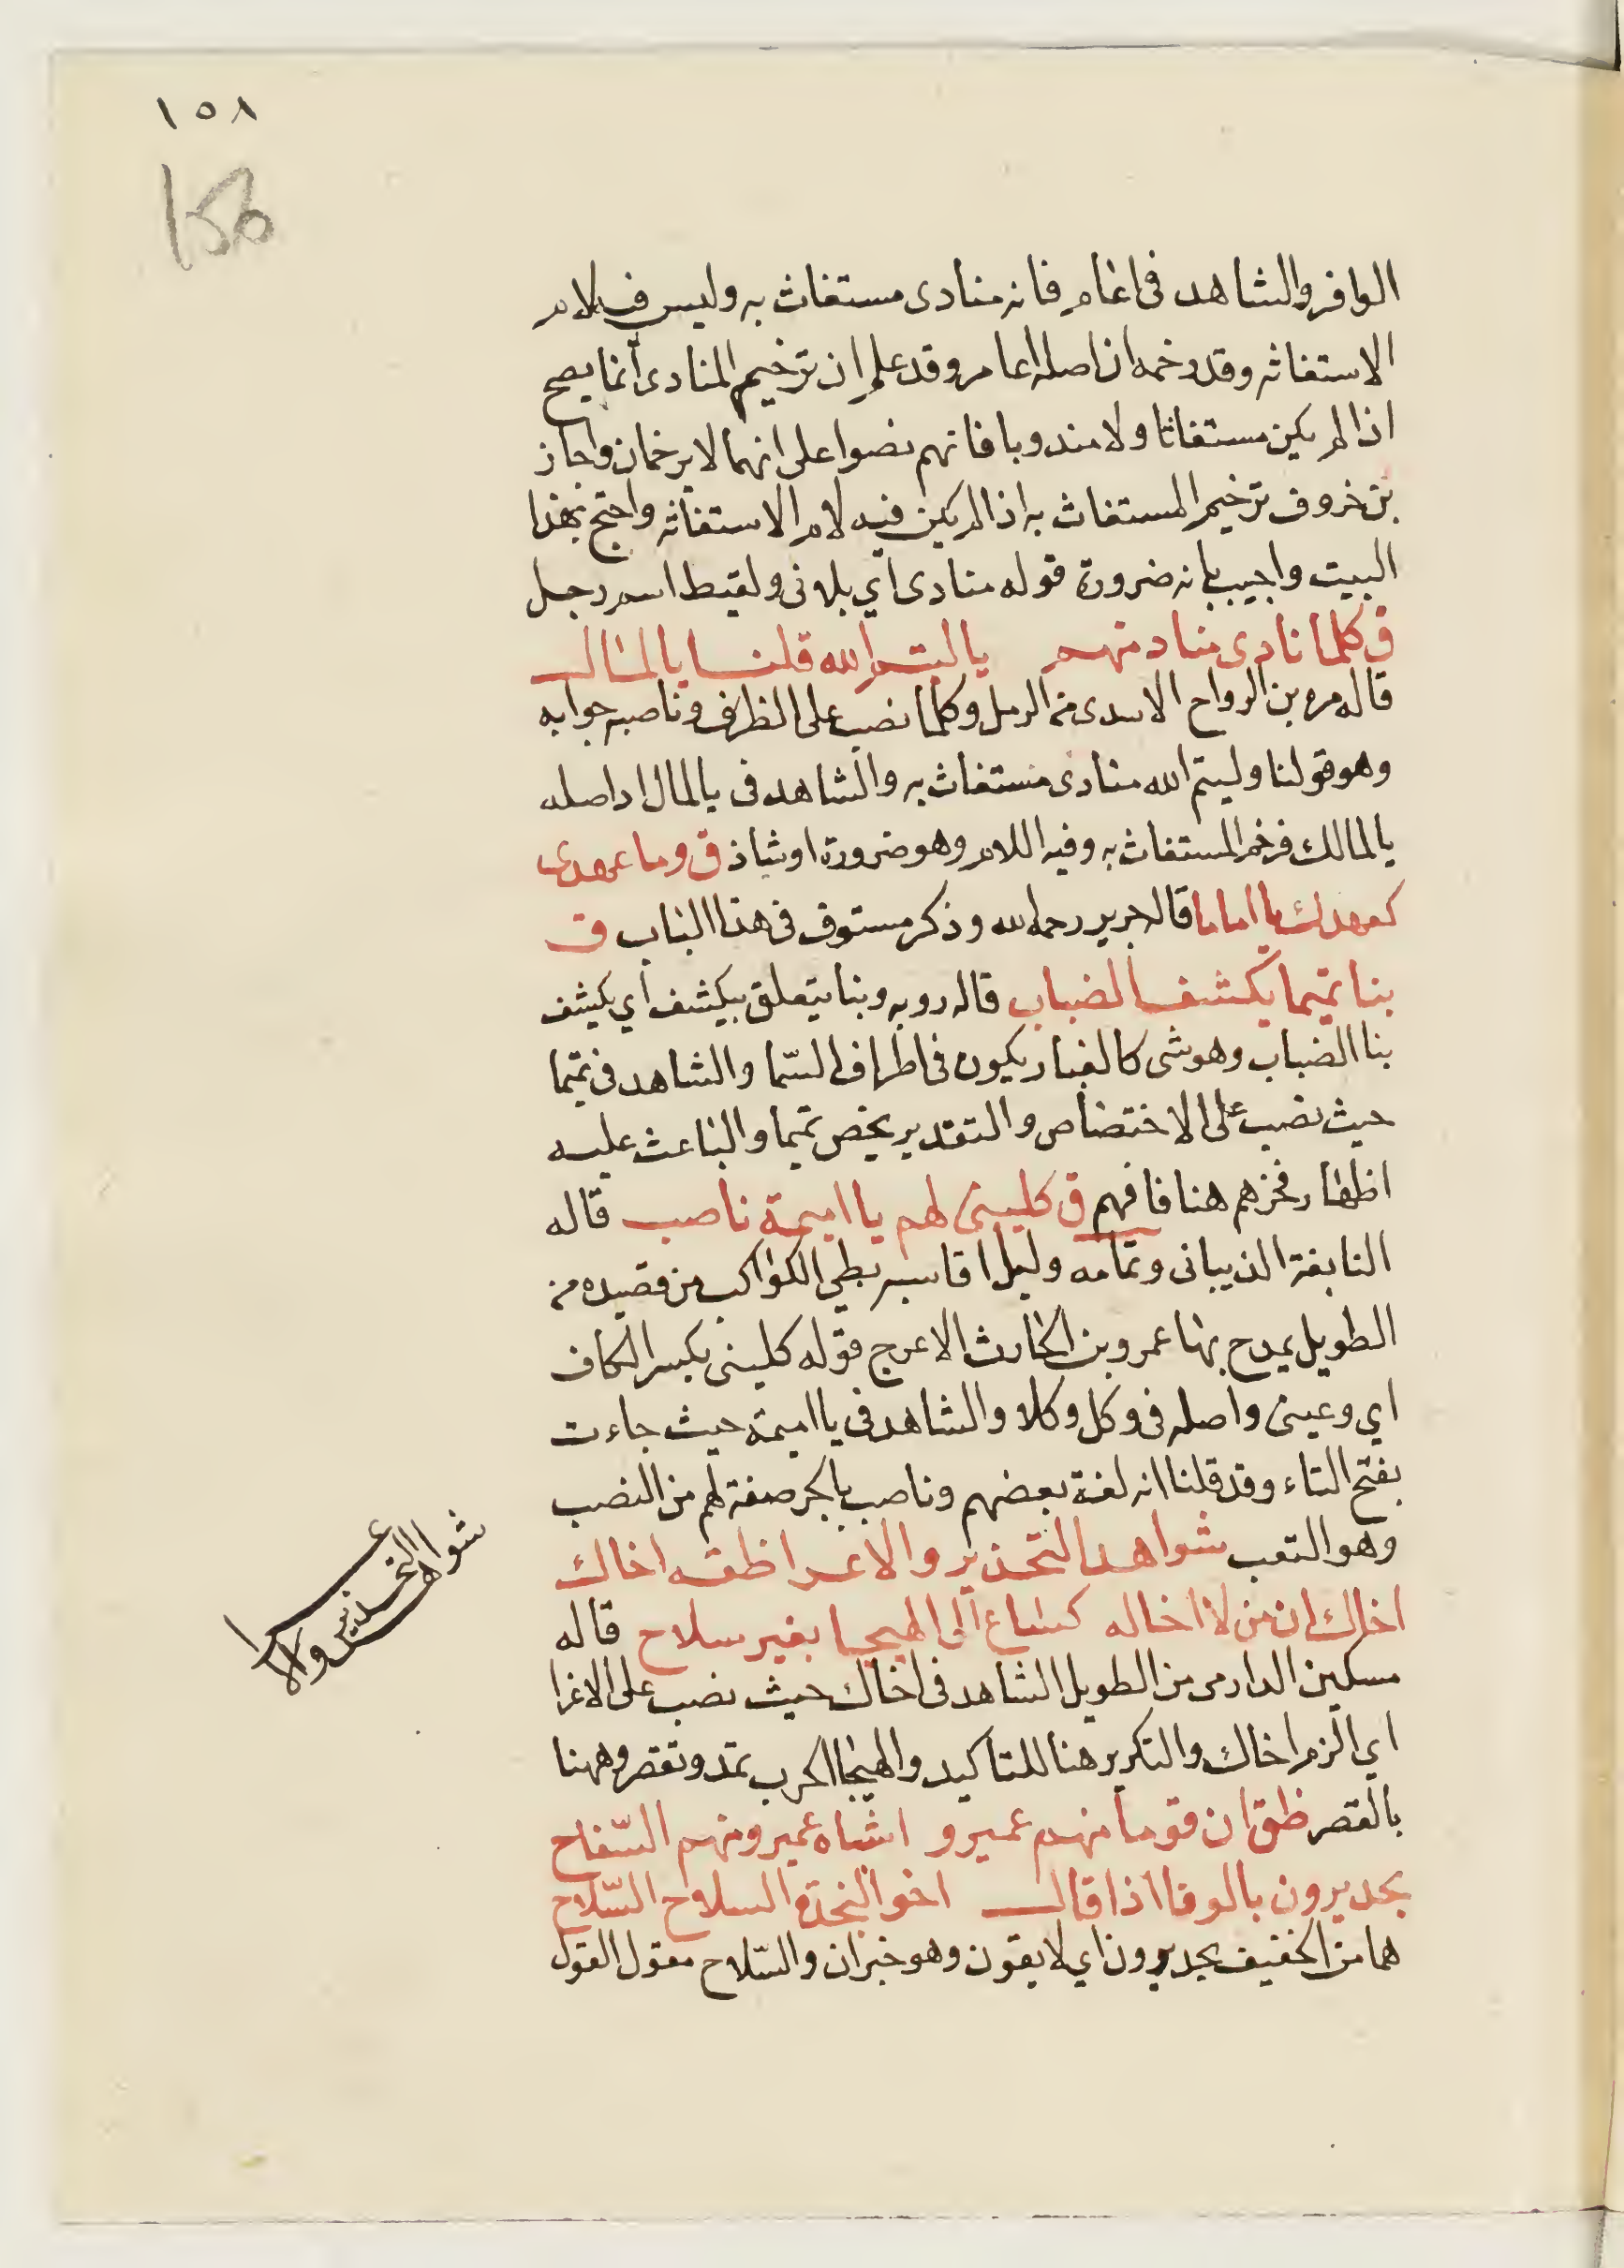 ١٥٨
158
الوافر والشاهد فى اعام فانه منادى مستغاث به وليس فيه لام
الاستغاثه وقد رخمه اذ اصله اعامر وقد علم ان ترخيم المنادى انما يصح
اذا لم يكن مستغاثا ولا مندوبا فانهم نصوا على انهما لا يرخمان واجاز
بن خروف ترخيم المستغاث به اذا لم يكن فيه لام الاستغاثه واحتج بهذا
البيت واجيب بانه ضرورة قوله منادى اي بلانى ولقيط اسم رجل
ق كلما نادى مناد منهم يا لتيم الله قلنا يا لمال
قاله مره بن الرواح الاسدى من الرمل وكلما نصب على الظرف وناصبه جوابه
وهو قولنا وليتم الله منادى مستغاث به والشاهد فى يالمال اذ اصله
يا لمالك فرخم المستغاث به وفيه اللام وهو ضرورة او شاذ ق وما عهدى
كعهدك يا اماما قاله جرير رحمه الله وذكر مستوفى فى هذا الباب ق
بنا تميما يكشف الضباب قاله روبه وبنا يتعلق بيكشف اي يكشف
بنا الضباب وهو شى كالغبار يكون فى اطراف السّما والشاهد فى تميما
حيث نصب على الاختصاص والتقدير يخص تميما والباعث عليه
اظهار فخرهم هنا فافهم ق كلينى لهم يا اميمة ناصب قاله
النابغة الذيبانى وتمامه وليل اقاسيه بطي الكواكب من قصيده من
الطويل يمدح بها عمرو بن الحارث الاعرج قوله كلينى بكسر الكاف
اي وعينى واصله فى وكل وكلا والشاهد فى يا اميمة حيث جاءت
بفتح التاء وقد قلنا انه لغة بعضهم وناصب بالجر صفة لهم من النصب
وهو التعب شواهد التحذير والاغرا ظقه اخاك
اخاك ان من لا اخاله كساع الى الهيجا بغير سلاح قاله
مسكين الدارمى من الطويل الشاهد فى اخاك حيث نصب على الاغرا
اي الزم اخاك والتكرير هنا للتاكيد والهيجا الحرب تمد وتقصر وههنا
بالقصر ظق ان قوما منهم عمير و اشباه عمير ومنهم السّفاح
بجديرون بالوفا اذا قال اخو النجدة السلاح السّلاح
هما من الخفيف بجديرون اي لايقون وهو خبر ان والسّلاح مقول القول
شواهد التحذير والاغرا